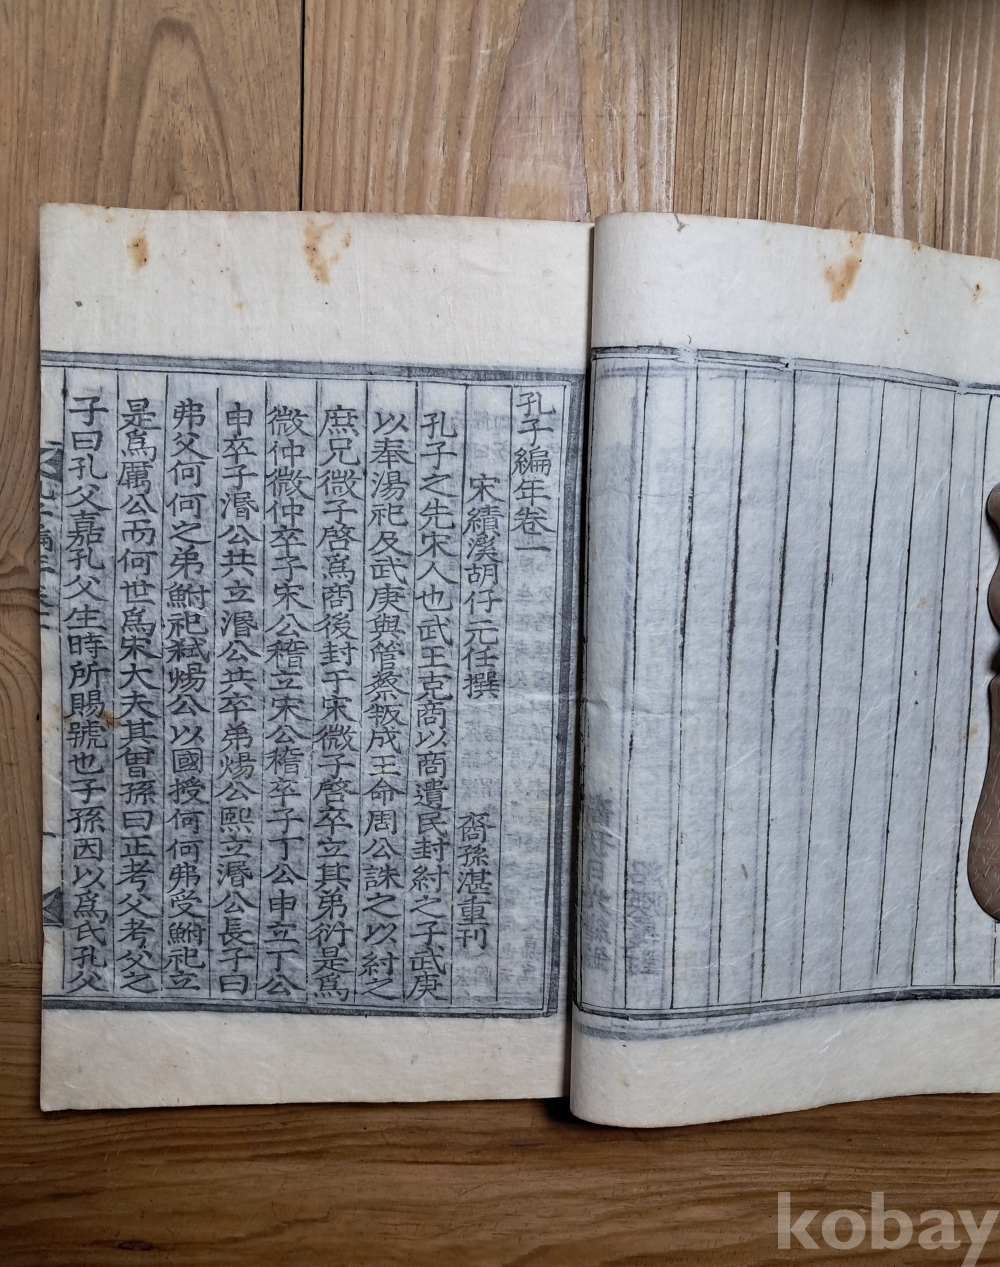 孔子編年卷一
宋績溪胡仔元任撰 裔孫湛重刊
孔子之先宋人也武王克商以商遺民封紂之子武庚
以奉湯祀及武庚與管蔡叛成王命周公誅之以紂之
庶兄微子啓爲商後封于宋微子啓卒立其弟衍是爲
微仲微仲卒子宋公稽立宋公稽卒子丁公申立丁公
申卒子湣公共立湣公共卒弟煬公熙立湣公長子曰
弗父何何之弟鮒祀弒煬公以國授何何弗受鮒祀立
是爲厲公而何世爲宋大夫其曾孫曰正考父考父之
子曰孔父嘉孔父生時所賜號也子孫因以爲氏孔父
kobay